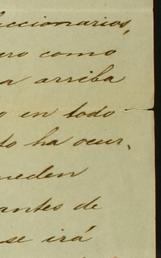 uccionarios,
ero como
a arriba
o en todo
to ha ocur-
ueden
antes de
se irá